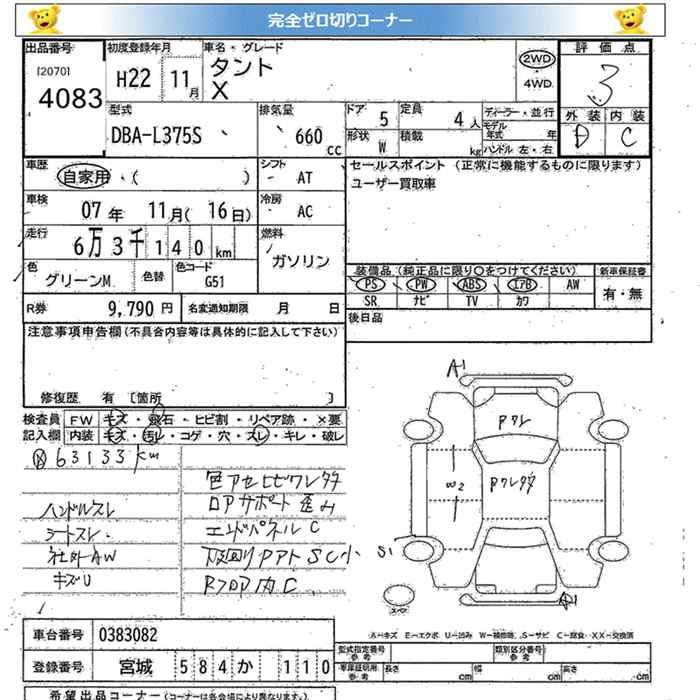 完全ゼロ切りコーナー
出品番号
[2070]
4083
初度登録年月
H22 11月
車名・グレード
タント
X
2WD
4WD
評価点
3
外装 内装
D C
型式
DBA-L375S
排気量
660 cc
ドア 5
定員 4人
形状 W
積載 kg
ディーラー・並行
モデル年式 年
ハンドル 左・右
車歴
自家用・( )
シフト
AT
セールスポイント (正常に機能するものに限ります)
ユーザー買取車
車検
07年 11月(16日)
冷房
AC
走行
6万3千140km
燃料
ガソリン
色
グリーンM
色替
色コード
G51
装備品(純正品に限り○をつけてください)
新車保証書
PS PW ABS エアB AW
有・無
SR ナビ TV カワ
R券 9,790円
名変通知期限 月 日
後日品
注意事項申告欄(不具合内容等は具体的に記入して下さい)
修復歴 有 [箇所 ]
検査員 FW キズ・飛石・ヒビ割・リペア跡・×要
記入欄 内装 キズ・汚レ・コゲ・穴・スレ・キレ・破レ
63133km
ハンドルスレ
シートスレ
社外AW
キズU
色アセヒビワレタタ
ロアサポート歪み
エンドパネルC
下回りアトSC小
RフロアC
A1
Pワレ
Pワレタタ
W2
S1
A1
スペア
A-キズ E-エクボ U-凹み W-補修跡 S-サビ C-腐食 XX-交換済
車台番号 0383082
登録番号 宮城 584 か 110
型式指定番号参考
類別区分番号参考
車庫証明用参考 長さ cm 幅 cm 高さ cm
希望出品コーナー(コーナーは各会場により異なります。)